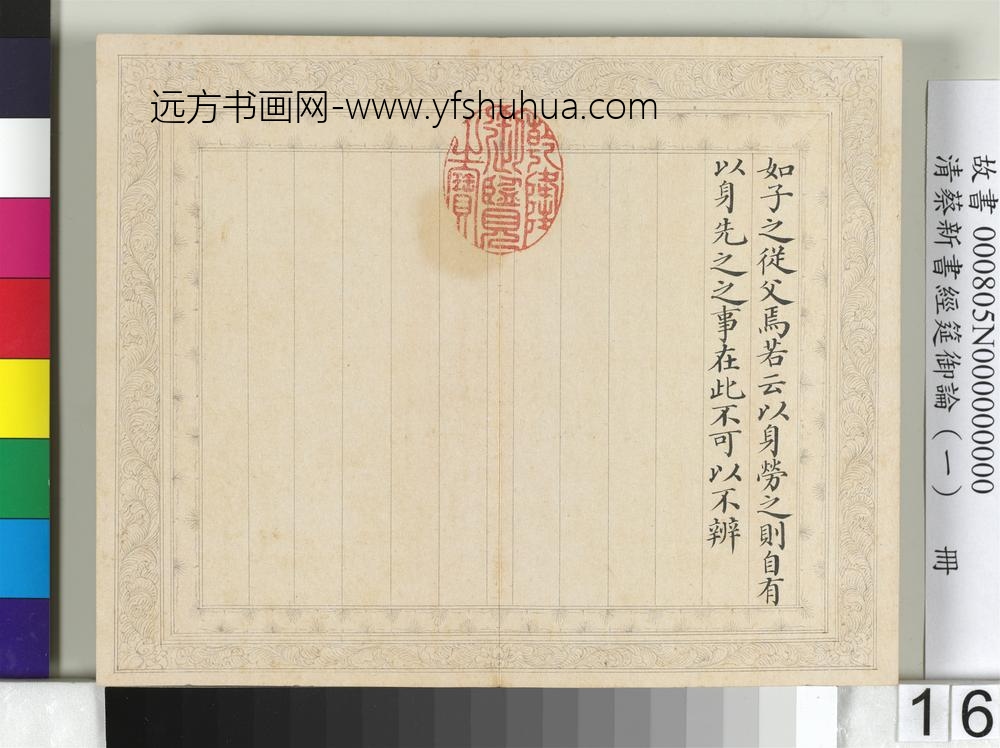 远方书画网-www.yfshuhua.com
如子之從父焉若云以身勞之則自有
以身先之之事在此不可以不辨
乾隆
御覽
之寶
故書 000805N000000000
清蔡新書經筵御論(一) 冊
16